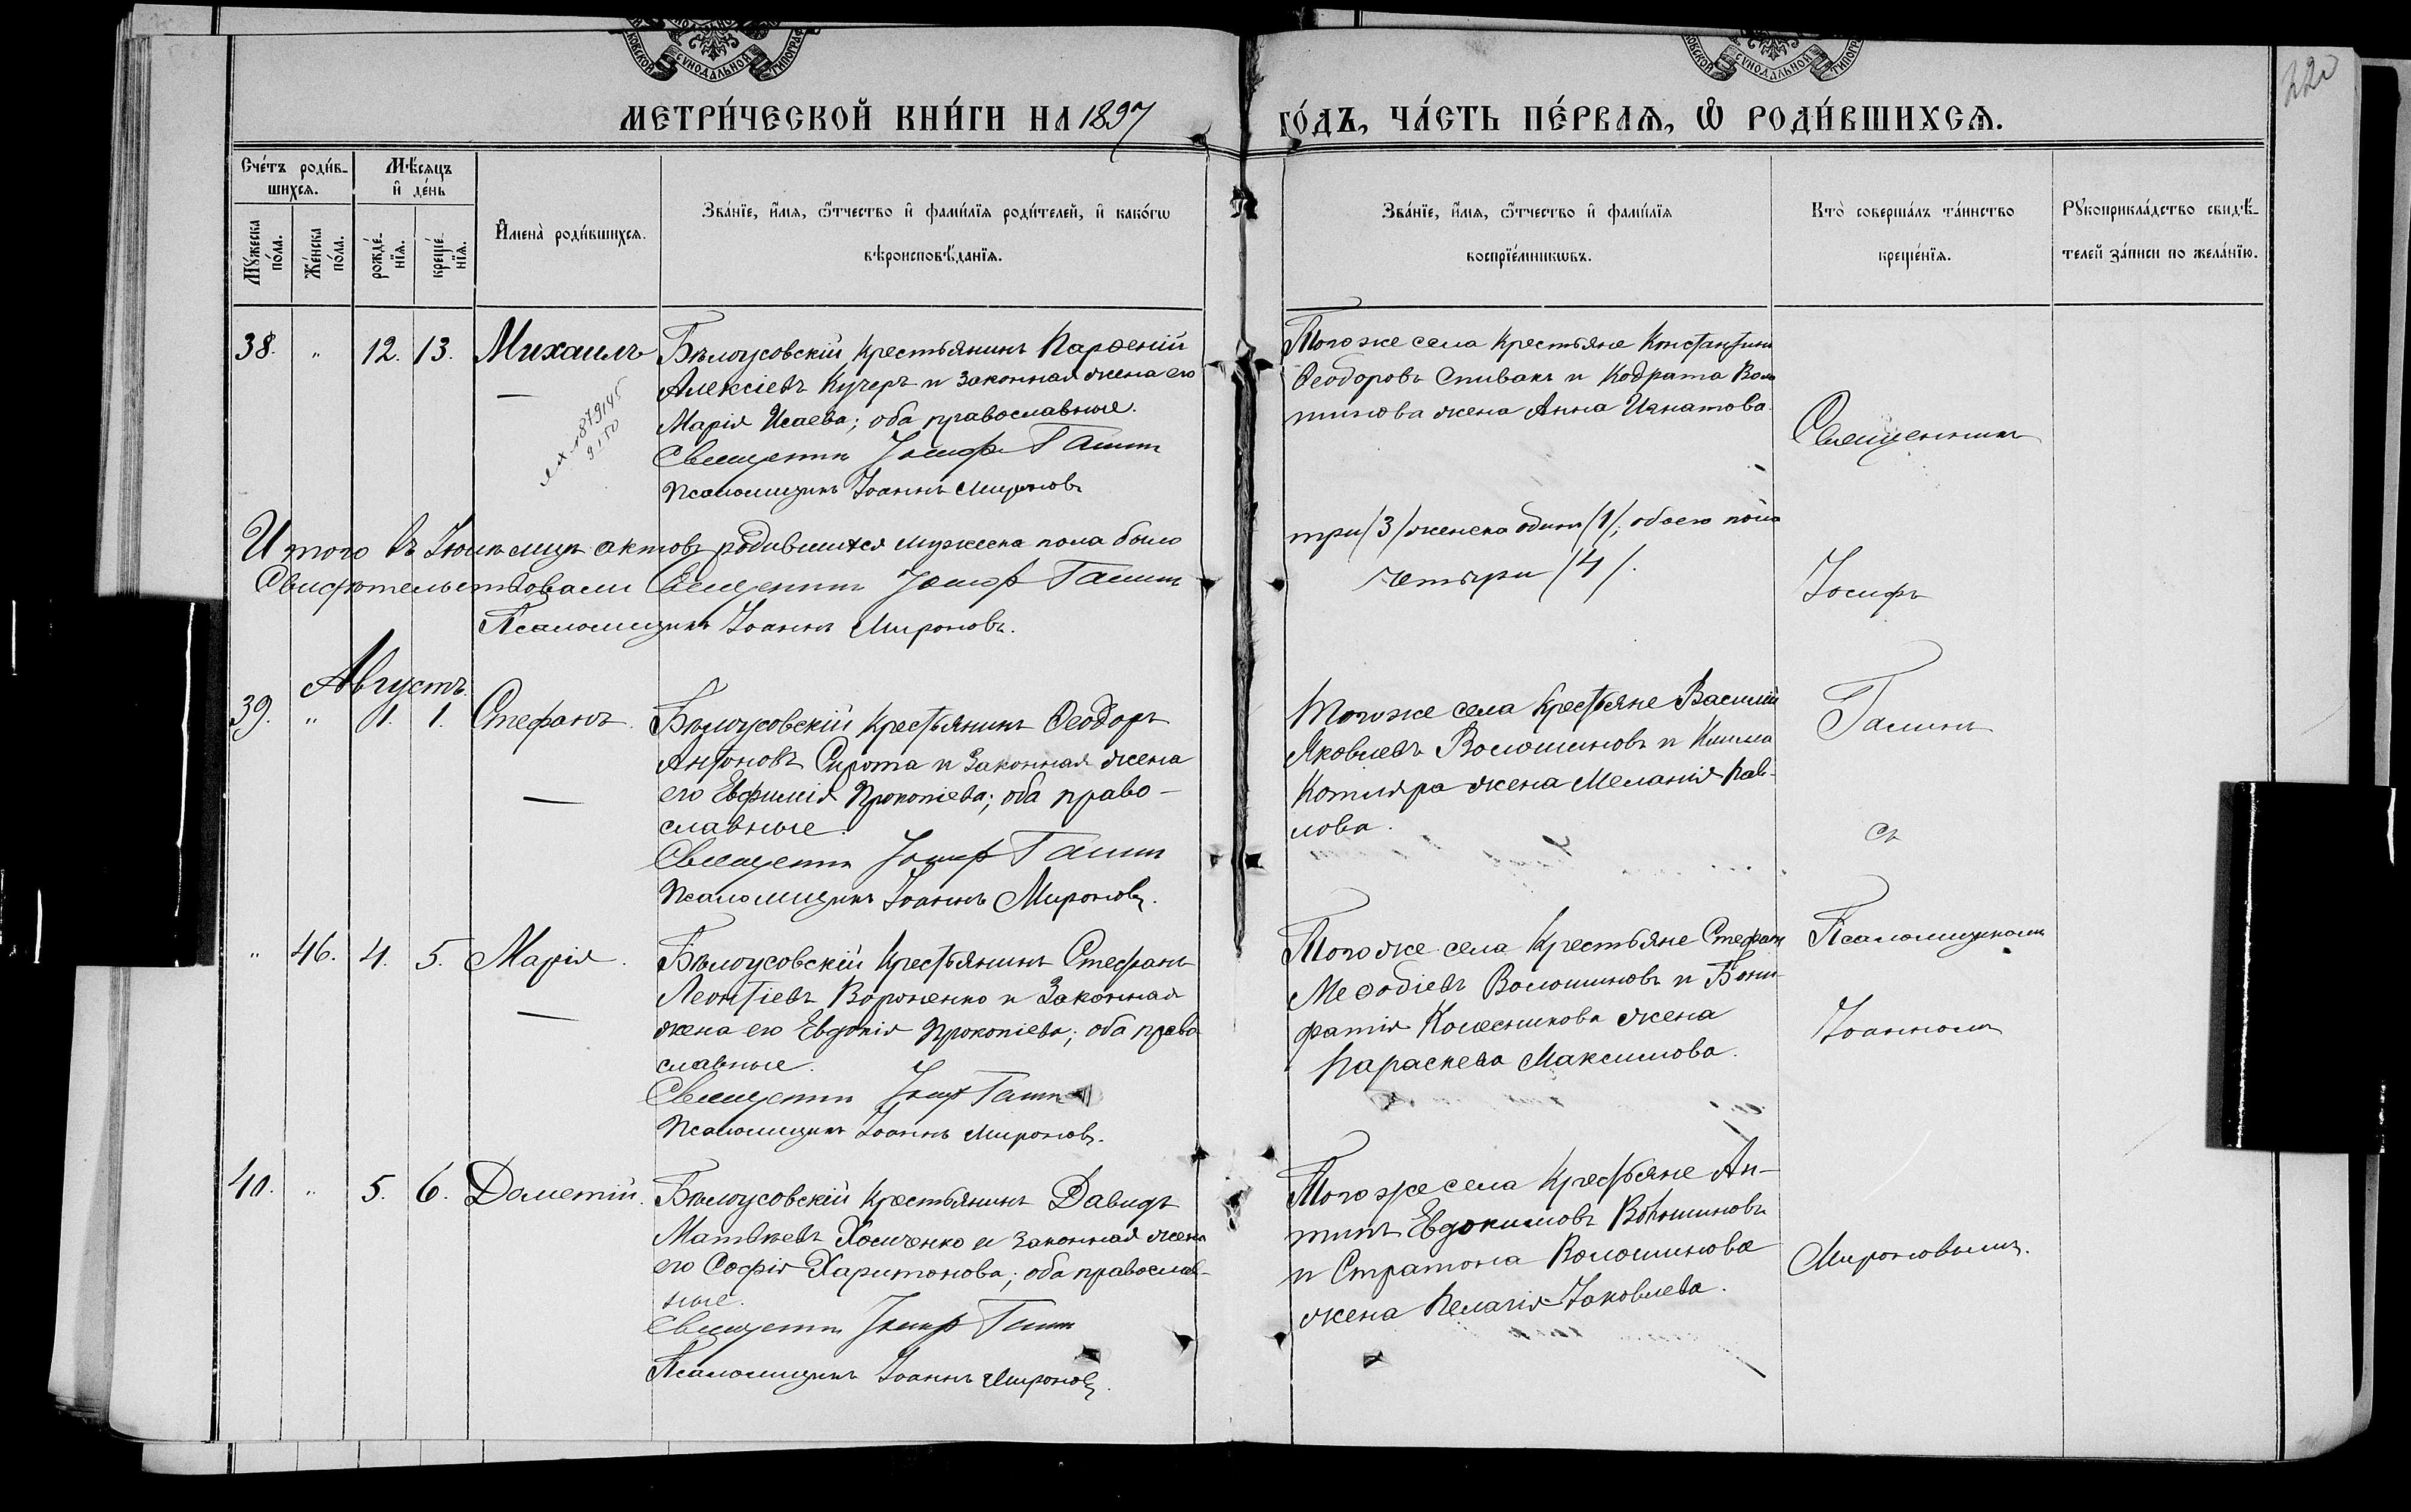 КОВСКОЙ СѴНОДАЛЬНОЙ ТИПОГРАФ
КОВСКОЙ СѴНОДАЛЬНОЙ ТИПОГРАФ
220
МЕТРИ́ЧЕСКОЙ КНИ́ГИ НА 1897 ГО́ДЪ, ЧА́СТЬ ПЕ́РВАѦ, Ѡ РОДИ́ВШИХСѦ.
Сче́тъ роди́в-
шихсѧ.
Мѣ́сѧцъ
и҆ де́нь
Мꙋ́жеска
по́ла.
Же́нска
по́ла.
рожде́-
нїѧ.
креще́-
нїѧ.
И҆мена̀ роди́вшихсѧ.
Зва́нїе, и҆́мѧ, ѻ҆́тчество и҆ фами́лїѧ роди́телей, и҆ како́гѡ
вѣроисповѣ́данїѧ.
Зва́нїе, и҆́мѧ, ѻ҆́тчество и҆ фами́лїѧ
воспрїе́мникѡвъ.
Кто̀ соверша́лъ та́инство
креще́нїѧ.
Рꙋкоприкла́дство свидѣ́-
телей за́писи по жела́нїю.
38. " 12. 13. Михаилъ
Бѣлоусовскій крестьянинъ Парѳеній
Алексіевъ Кучеръ и законная жена его
Марія Исаева; оба православные.
Священникъ Іосифъ Галинъ
Псаломщикъ Іоаннъ Мироновъ
879145
9150
Того же села крестьяне Константинъ
Ѳеодоровъ Спивакъ и Кодрата Воло
шинова жена Анна Игнатова.
Священникъ
Итого въ Іюлѣ мцѣ актовъ родившихся мужеска пола было
три /3/ женска одинъ /1/; обоего пола
Свидѣтельствовали Священникъ Іосифъ Галинъ
четыри /4/.
Псаломщикъ Іоаннъ Мироновъ.
Іосифъ
Августъ.
39. " 1. 1. Стефанъ.
Бѣлоусовскій крестьянинъ Ѳеодоръ
Антоновъ Сирота и законная жена
его Евфимія Прокопіева; оба право-
славные.
Священникъ Іосифъ Галинъ
Псаломщикъ Іоаннъ Мироновъ.
Того же села крестьяне Василій
Яковлевъ Волошиновъ и Клима
Котляра жена Меланія Пав-
лова.
Галинъ
съ
" 46. 4. 5. Марія.
Бѣлоусовскій крестьянинъ Стефанъ
Леонтіевъ Вороненко и законная
жена его Евдокія Прокопіева; оба право
славные.
Священникъ Іосифъ Галинъ
Псаломщикъ Іоаннъ Мироновъ.
Того же села крестьяне Стефанъ
Меѳодіевъ Волошиновъ и Бони-
фатія Колесникова жена
Параскева Максимова.
Псаломщикомъ
Іоанномъ
40. " 5. 6. Дометій.
Бѣлоусовскій крестьянинъ Давидъ
Матѳѣевъ Хомченко и законная жена
его Софія Харитонова; оба православ-
ные.
Священникъ Іосифъ Галинъ
Псаломщикъ Іоаннъ Мироновъ.
Того же села крестьяне Ан-
типъ Евдокимовъ Волошиновъ
и Стратона Волошинова
жена Пелагія Іаковлева.
Мироновымъ.